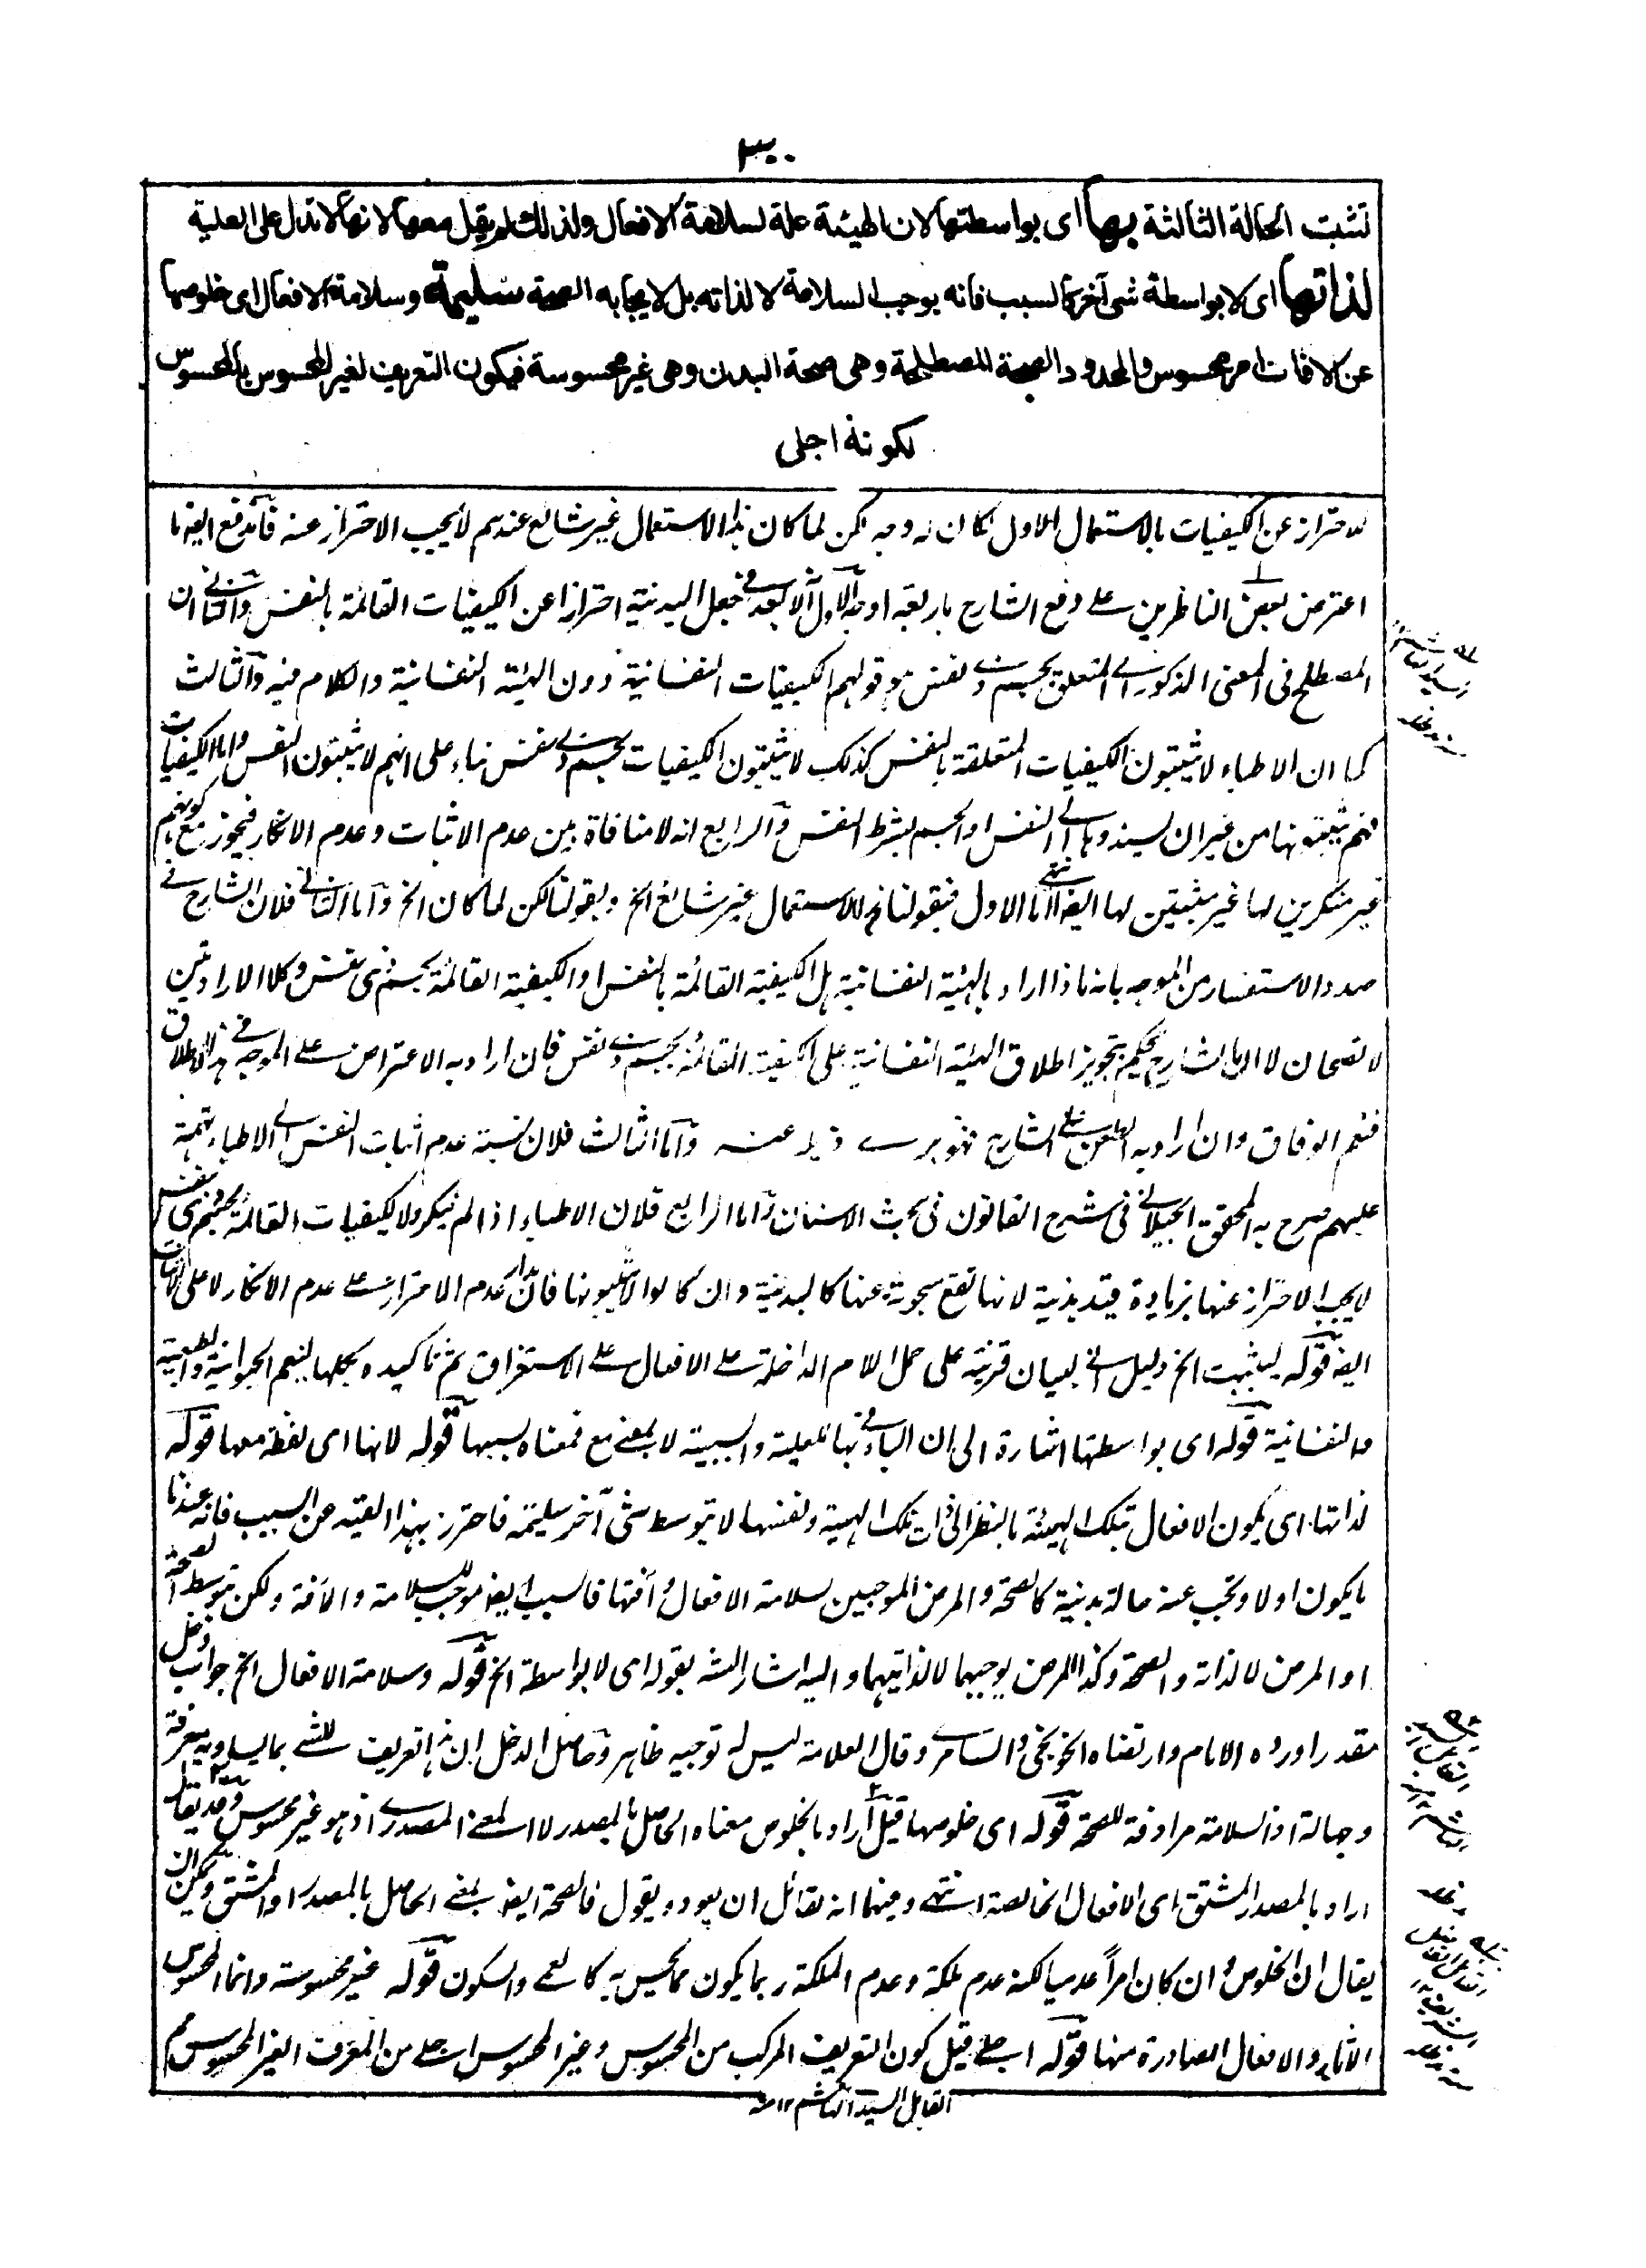 ٣٠٠
تثبت الحالة الثالثة بها اى بواسطتها لان الهيئة علة لسلامة الافعال ولذلك لم يقل معها لانها لا تدل على العلية
لذاتها اى لا بواسطة شئ آخر كالسبب فانه يوجب السلامة لا لذاته بل لايجابه الصحة سليمة وسلامة الافعال اى خلوصها
عن الآفات امر محسوس والمحدود الصحة المصطلحة وهى صحة البدن وهى غير محسوسة فيكون التعريف لغير المحسوس بالمحسوس
لكونه اجلى
للاحتراز عن الكيفيات بالاستعمال الاول لكان له وجه لكن لما كان هذا الاستعمال غير شائع عندهم لا يجب الاحتراز عنه فاندفع ايضا ما
اعترض بعض الناظرين على دفع الشارح باربعة اوجه الاول لا بعد فى جعل البدنية احترازا عن الكيفيات القائمة بالنفس والثانى ان
المصطلح فى المعنى المذكور اى المتعلق بجسم ذى نفس هو قولهم الكيفيات النفسانية دون الهيئة النفسانية والكلام فيه والثالث
كما ان الاطباء لا يثبتون الكيفيات المتعلقة بالنفس كذلك لا يثبتون الكيفيات بجسم ذى نفس بناء على انهم لا يثبتون النفس واما الكيفيات
فهم يثبتونها من غير ان يسندوها الى النفس او الجسم بشرط النفس والرابع انه لا منافاة بين عدم الاثبات وعدم الانكار فيجوز مع كونهم
غير منكرين لها غير مثبتين لها ايضا انتهى اما الاول فبقولنا الاستعمال غير شائع الخ وبقولنا لكن لما كان الخ واما الثانى فلان الشارح فى
صدد الاستفسار من الموجه بانه ماذا اراد بالهيئة النفسانية هل الكيفية القائمة بالنفس او الكيفية القائمة بجسم ذى نفس وكلا الارادتين
لا تصحان لا ان الشارح يحكم بتجويز اطلاق الهيئة النفسانية على الكيفية القائمة بجسم ذى نفس فان اراد به الاعتراض على الموجه فى هذا الاطلاق
فنعم الوفاق وان اراد به الطعن على الشارح فهو برى عنه واما الثالث فلان نسبة عدم اثبات النفس الى الاطباء تهمة
عليهم صرح به المحقق الجيلانى فى شرح القانون فى بحث الاسنان واما الرابع فلان الاطباء اذا لم ينكروا الكيفيات القائمة بجسم ذى نفس
لا يجب الاحتراز عنها بزيادة قيد بدنية لانها تقع مبحوثة عنها كالبدنية وان كانوا لا يثبتونها فان مدار عدم الاحتراز على عدم الانكار لا على الاثبات
ايضا قوله ليثبت الخ دليل اى لبيان قرينة على حمل اللام الداخلة على الافعال على الاستغراق ثم تاكيده بكلها ليعم الحيوانية والطبعية
والنفسانية قوله اى بواسطتها اشارة الى ان الباء فى بها للعلية والسببية لا بمعنى مع فمعناه بسببها قوله لانها اى لفظة معها قوله
لذاتها اى يكون الافعال بتلك الهيئة بالنظر الى ذات تلك الهيئة ونفسها لا بتوسط شئ آخر سليمة فاحترز بهذا القيد عن السبب فانه عندنا
ما يكون اولا ويجب عنه حالة بدنية كالصحة والمرض الموجبين لسلامة الافعال وآفتها فالسبب ايضا موجب للسلامة والآفة ولكن بتوسط الصحة
او المرض لا لذاته والصحة وكذا المرض يوجبهما لا لذاتيهما واليه اشار الشه بقوله اى لا بواسطة الخ قوله وسلامة الافعال الخ جواب دخل
مقدر اورده الامام وارتضاه الخونجى والسامرى وقال العلامة ليس له توجيه ظاهر وحاصل الدخل ان هذا تعريف للشئ بما يساويه معرفة
وجهالة اذ السلامة مرادفة للصحة قوله اى خلوصها قيل اراد بالخلوص معناه الحاصل بالمصدر لا المعنى المصدرى اذ هو غير محسوس وقد يقال
اراد بالمصدر المشتق اى الافعال الخالصة انتهى وفيهما انه لقائل ان يعود ويقول فالصحة ايضا بمعنى الحاصل بالمصدر او المشتق ويمكن ان
يقال ان الخلوص وان كان امراً عدميا لكنه عدم ملكة وعدم الملكة ربما يكون مما يحس به كالعمى والسكون قوله غير محسوسة وانما المحسوس
الآثار والافعال الصادرة منها قوله اجلى قيل كون التعريف المركب من المحسوس وغير المحسوس اجلى من المعرف الغير المحسوس
القائل السيد الهاشم ١٢ منه